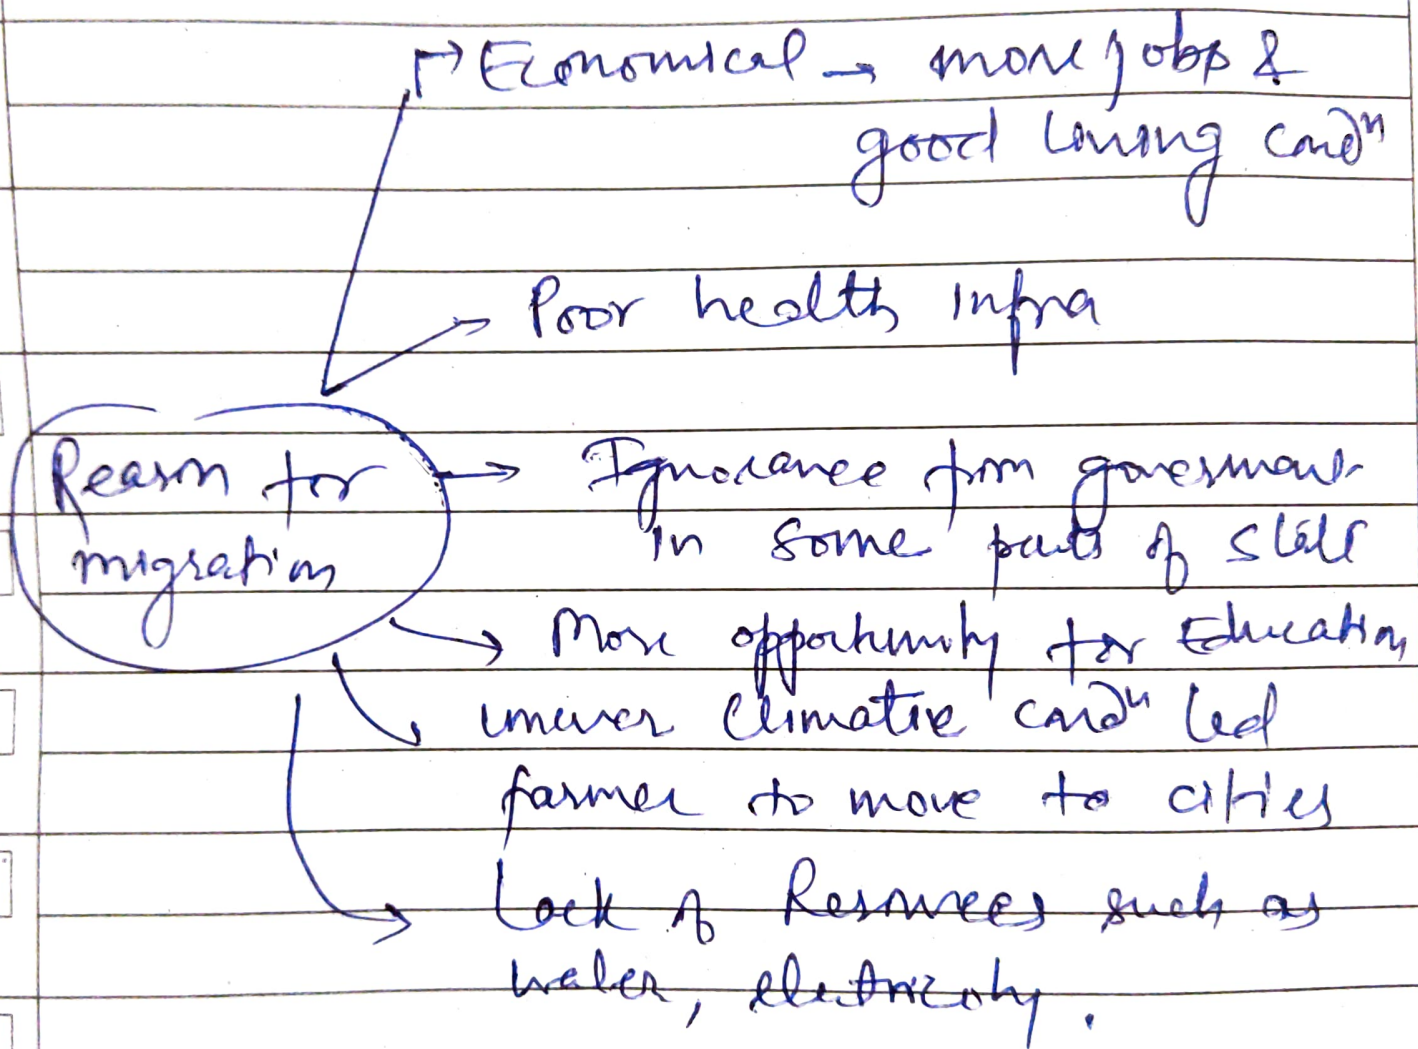 Economical → more jobs &
good living condⁿ
Poor health infra
Reason for
migration
→ Ignorance from government
in some parts of state
→ More opportunity for Education
uneven climatic condⁿ led
farmer to move to cities
→ Lack of Resources such as
water, electricity.